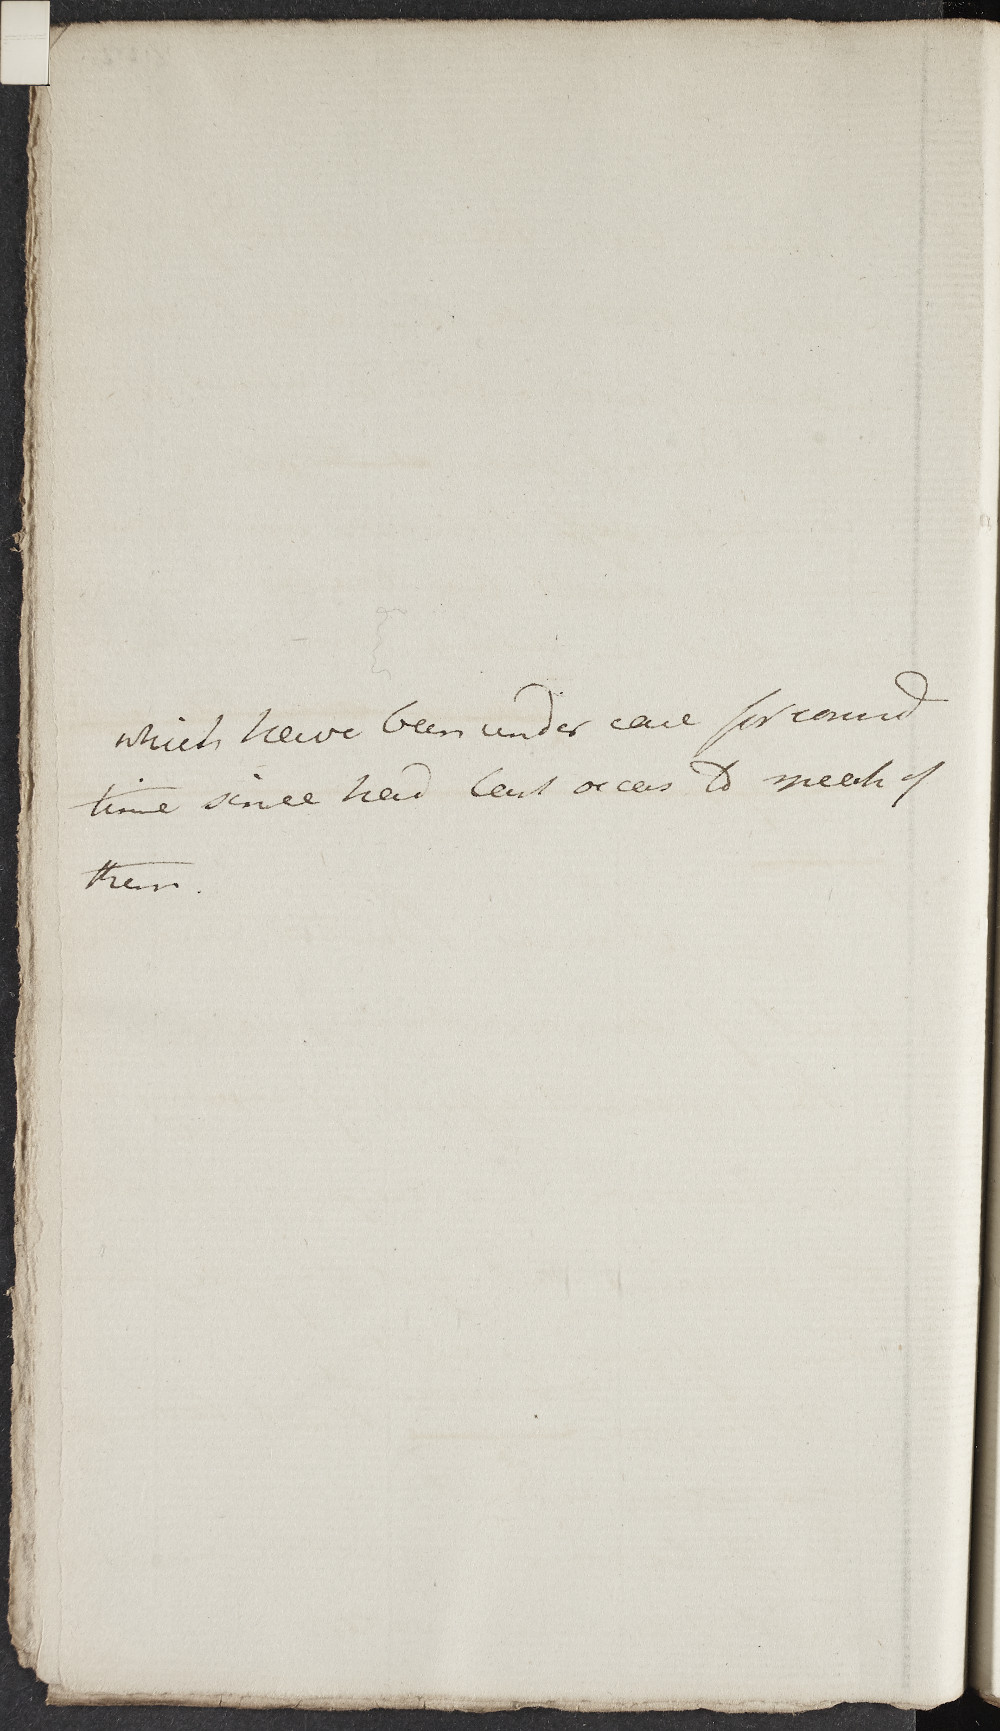 which have been under care for consid
time since had last occas to speak of
them.